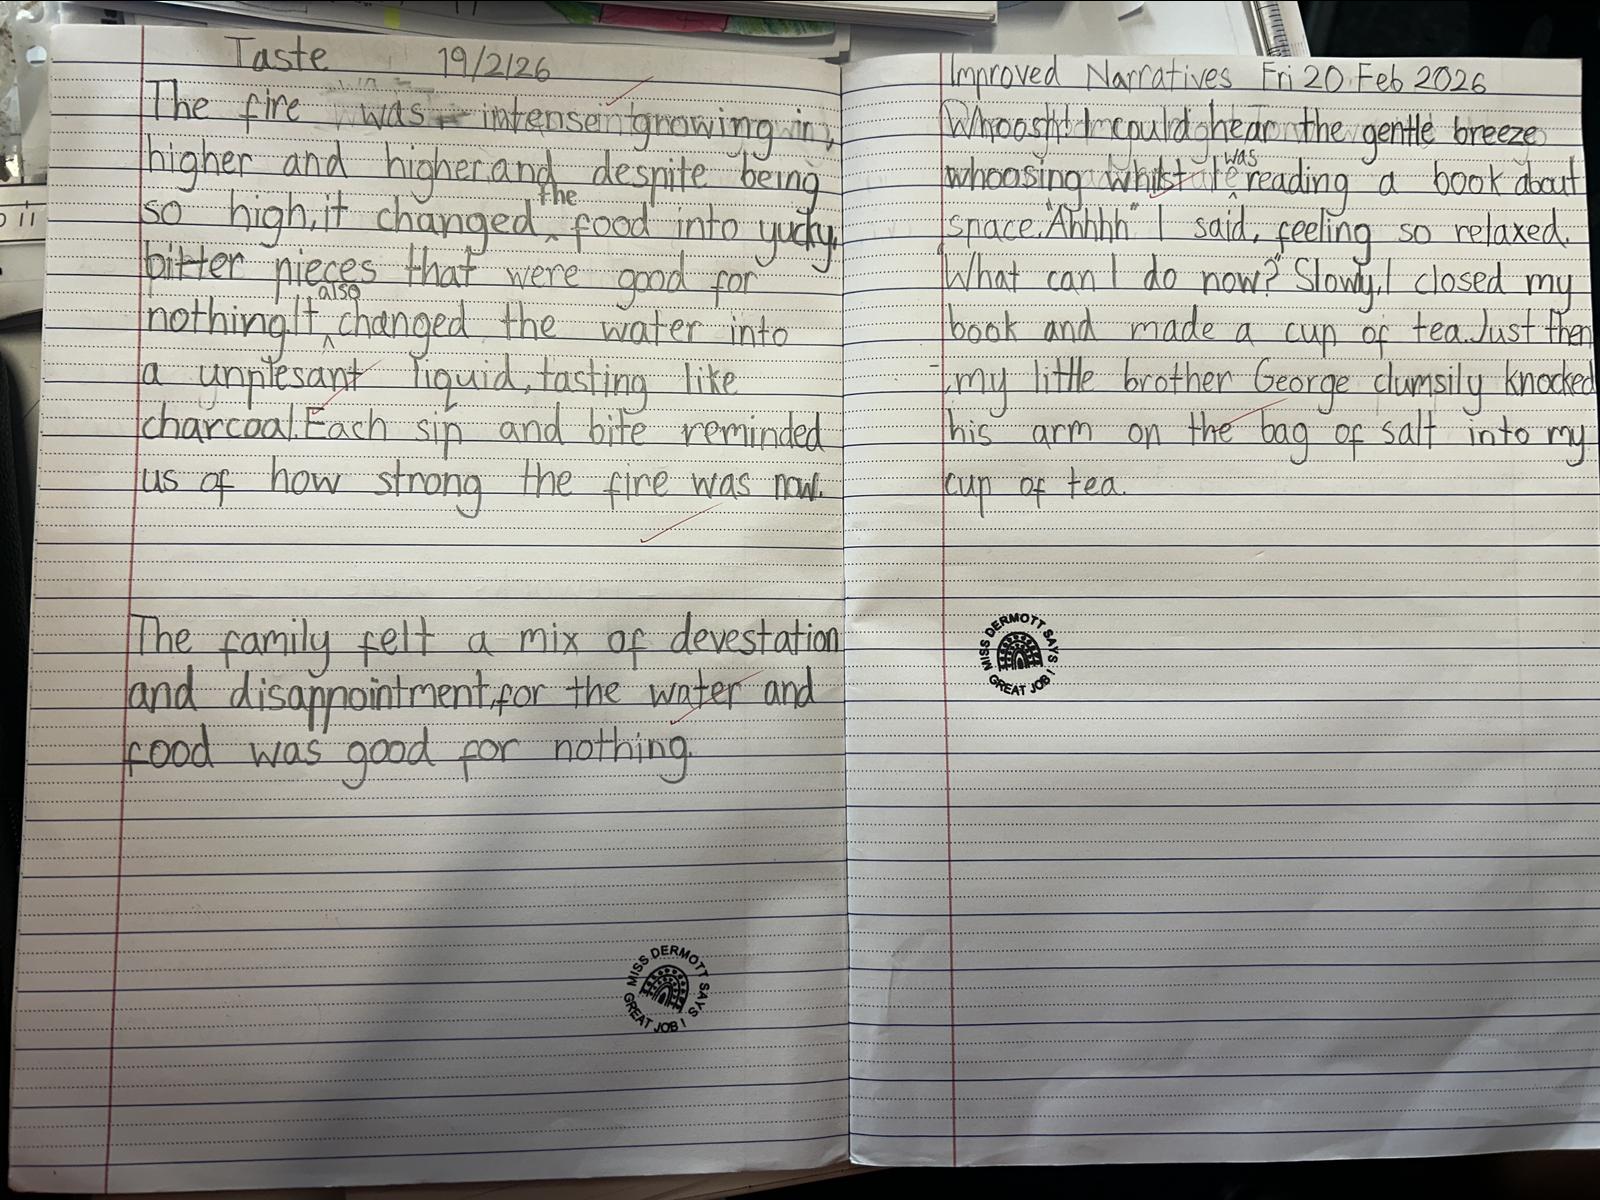 Taste 19/2/26
The fire was intense growing in,
higher and higher and despite being
so high, it changed the food into yucky,
bitter pieces that were good for
nothing. It also changed the water into
a unplesant liquid, tasting like
charcoal. Each sip and bite reminded
us of how strong the fire was now.
The family felt a mix of devestation
and disappointment, for the water and
food was good for nothing.
MISS DERMOTT SAYS
GREAT JOB!
Improved Narratives Fri 20 Feb 2026
Whoosh! I could hear the gentle breeze
whoosing whilst I was reading a book about
space. "Ahhhh" I said, feeling so relaxed.
"What can I do now?" Slowy, I closed my
book and made a cup of tea. Just then
, my little brother George clumsily knocked
his arm on the bag of salt into my
cup of tea.
MISS DERMOTT SAYS
GREAT JOB!